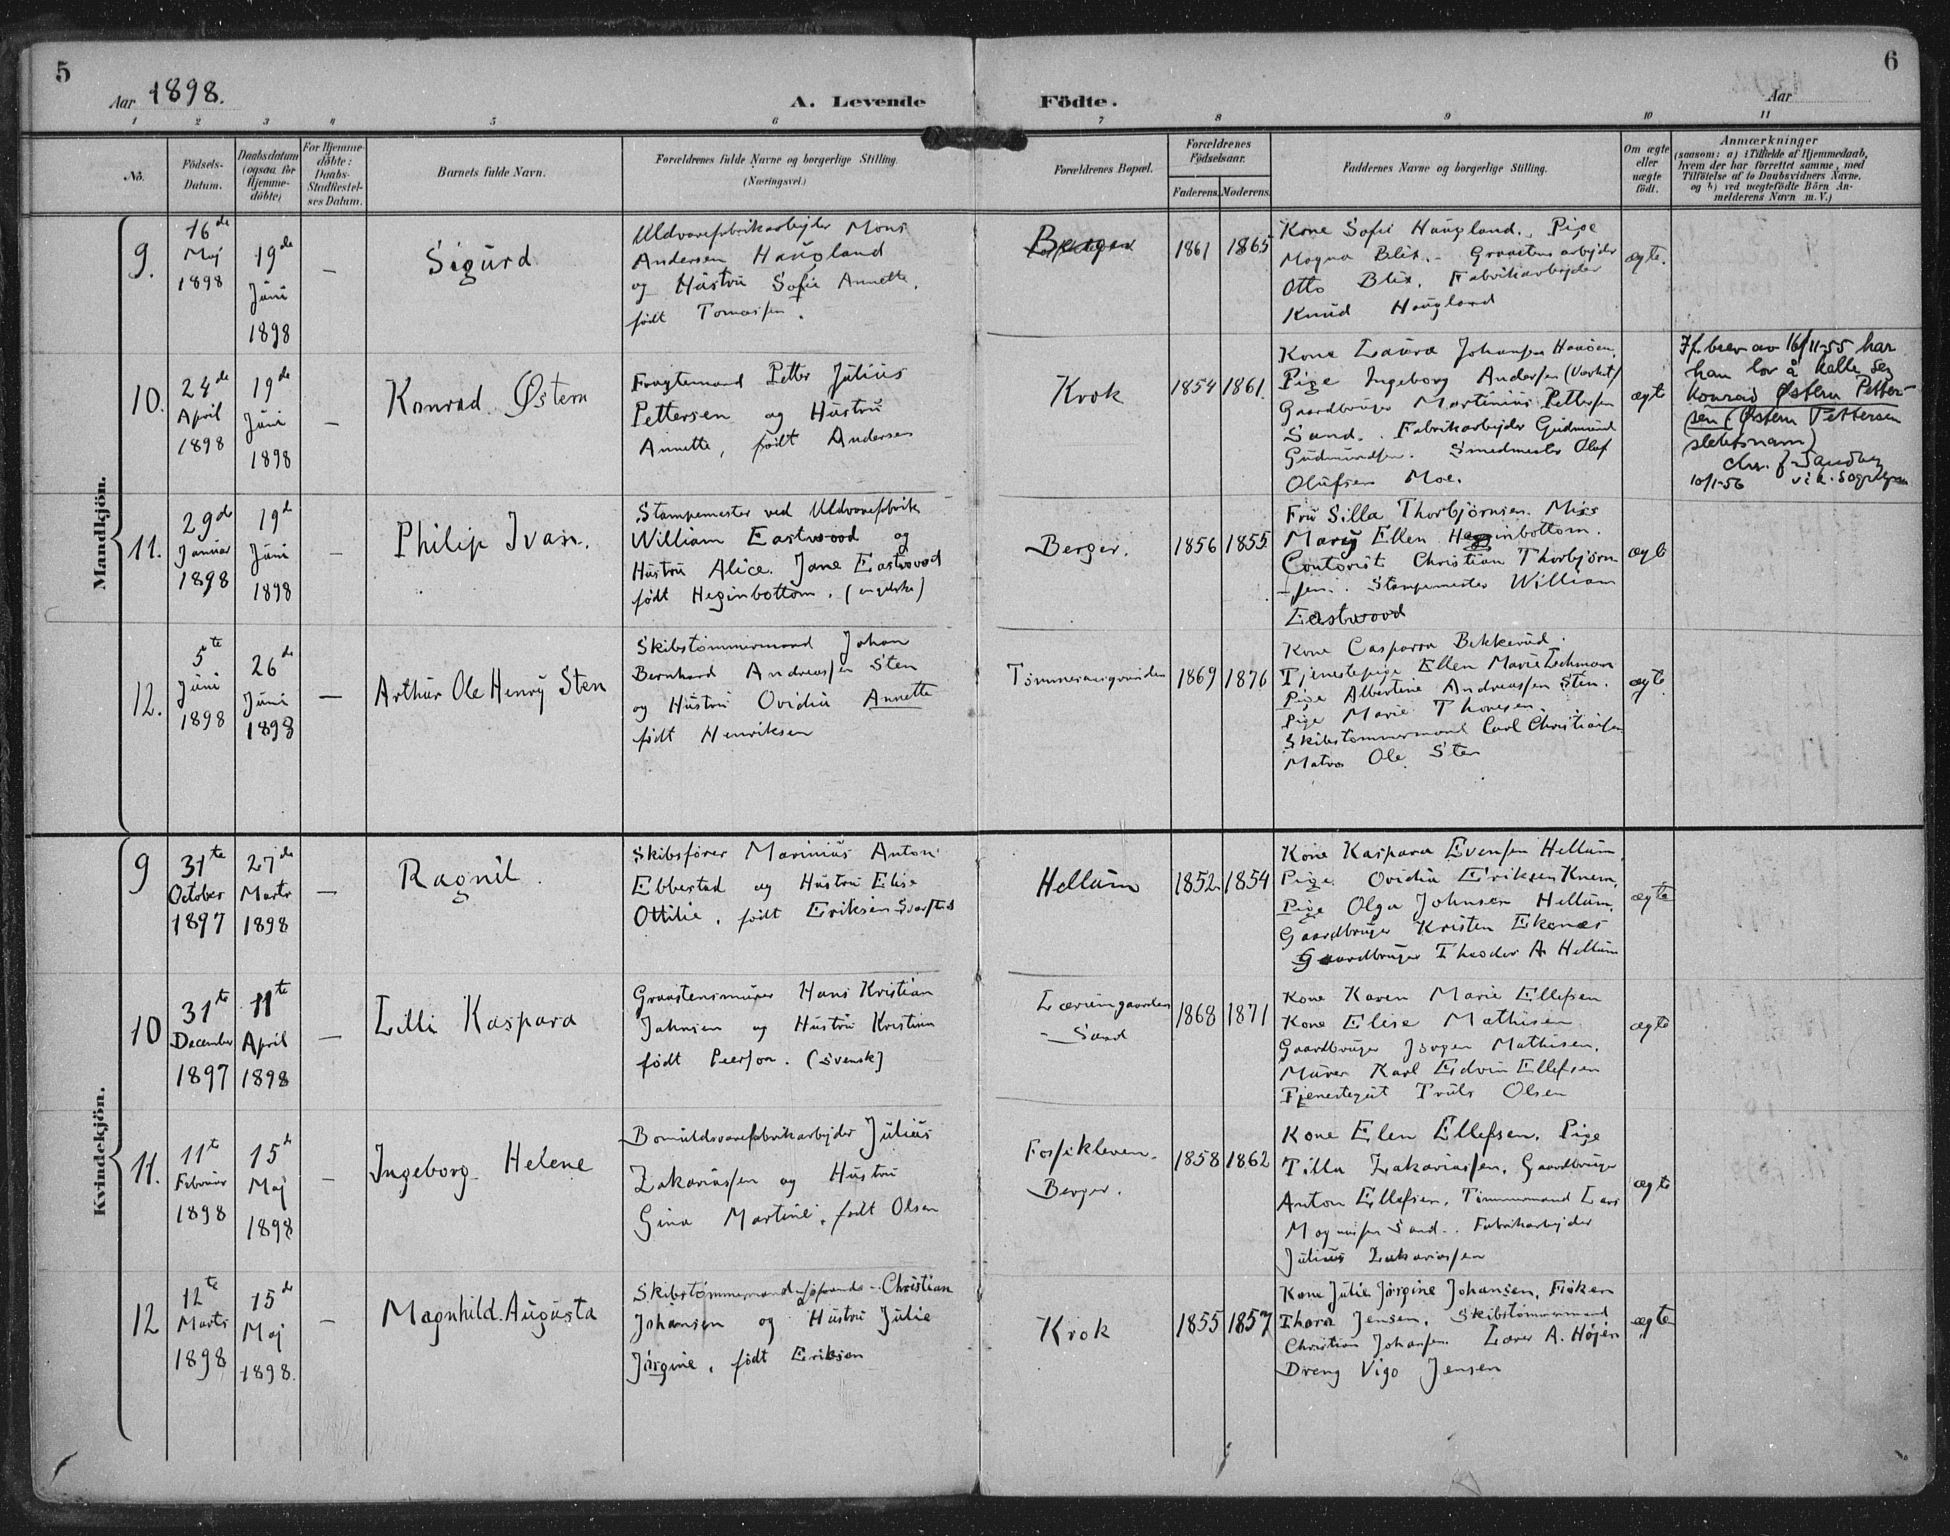 5
Aar 1898.
A. Levende Födte.
Aar
6
1 2 3 4 5 6 7 8 9 10 11
No.
Födsels-
Datum.
Daabsdatum
(ogsaa for
Hjemme-
döbte)
For Hjemme-
döbte:
Daabs-
Stadfæstel-
ses Datum.
Barnets fulde Navn.
Forældrenes fulde Navne og borgerlige Stilling.
(Næringsvei.)
Forældrenes Bopæl.
Forældrenes
Födselsaar.
Faderens. Moderens.
Faddernes Navne og borgerlige Stilling.
Om ægte
eller
uægte
födt.
Anmærkninger
(saasom: a) i Tilfælde af Hjemmedaab,
hvem der har forrettet samme, med
Tilföielse af to Daabsvidners Navne.
og b) ved uægtefödte Börn An-
melderens Navn m. V.)
Mandkjön.
9.
16de
Maj
1898
19de
Juni
1898
–
Sigurd
Uldvarefabrikarbejder Mons
Andersen Haugland
og Hustru Sofie Annette,
født Tomassen.
Berger
1861
1865
Kone Sofie Haugland. Pige
Magna Blix. Graastensarbejder
Otto Blix. Fabrikarbejder
Knud Haugland
ægte.
10.
24de
April
1898
19de
Juni
1898
–
Konrad Østern
Fragtemand Petter Julius
Pettersen og Hustru
Annette, født Andersen
Krok
1854
1861
Kone Laura Johansen Haasen.
Pige Ingeborg Andersen (Værket)
Gaardbruger Martinius Pettersen
Sand. Fabrikarbejder Gudmund
Gudmundsen. Smedmester Olaf
Olufsen Moe.
ægte
If. brev av 16/11-55 har
han lov å kalle seg
Konrad Østern Petter-
sen (Østern Pettersen
slektsnavn)
10/1-56
11.
29de
Januar
1898
19de
Juni
1898
–
Philip Ivan.
Stampemester ved Uldvarefabrik
William Eastwood og
Hustru Alice Jane Eastwood
født Heginbottom. (engelske)
Berger.
1856
1855
Fru Silla Thorbjørnsen. Miss
Mary Ellen Heginbottom.
Contorist Christian Thorbjørn
-sen. Stampemester William
Eastwood
ægte
12.
5te
Juni
1898
26de
Juni
1898
–
Arthur Ole Henry Sten
Skibstømmermand Johan
Bernhard Andreassen Sten
og Hustru Ovidia Annette
født Henriksen
1869
1876
Kone Casparra Bekkerud.
Tjenestepige Ellen Marie
Pige Albertine Andreassen Sten.
Pige Marie Thoresen.
Skibstømmermand Carl Christiansen
Matros Ole Sten
ægte
Kvindekjön.
9
31te
October
1897
27de
Marts
1898
–
Ragnil.
Skibsfører Marinius Anton
Ebbestad og Hustru Elise
Ottilie, født Eriksen Svarstad
Hellum
1852
1854
Kone Kaspara Evensen Hellum.
Pige Ovidia Eriksen Knem,
Pige Olga Johnsen Hellum,
Gaardbruger Kristen Ekenæs
Gaardbruger Theodor A. Hellum
ægte
10
31te
December
1897
11te
April
1898
–
Lilli Kaspara
Graastensmurer Hans Kristian
Johnsen og Hustru Kristina
født Peerson. (svensk)
Sand
1868
1871
Kone Karen Marie Ellefsen
Kone Elise Mathisen
Gaardbruger Jørgen Mathisen.
Murer Karl Edvin Ellefsen
Tjenestegut Truls Olsen
ægte
11.
11te
Februar
1898
15de
Maj
1898
–
Ingeborg Helene
Bomuldsvarefabrikarbejder Julius
Zakariassen og Hustru
Gina Martine, født Olsen
Fossekleven.
Berger.
1858
1862
Kone Elen Ellefsen, Pige
Tilla Zakariassen, Gaardbruger
Anton Ellefsen, Tømmermand Lars
Magnussen Sand. Fabrikarbejder
Julius Zakariassen
ægte
12
12te
Marts
1898
15de
Maj
1898.
–
Magnhild Augusta
Skibstømmermand Christian
Johansen og Hustru Julie
Jørgine, født Eriksen
Krok
1855
1857
Kone Julie Jørgine Johansen, Frøken
Thora Jensen, Skibstømmermand
Christian Johansen Lærer A. Højen
Dreng Vigo Jensen
ægte